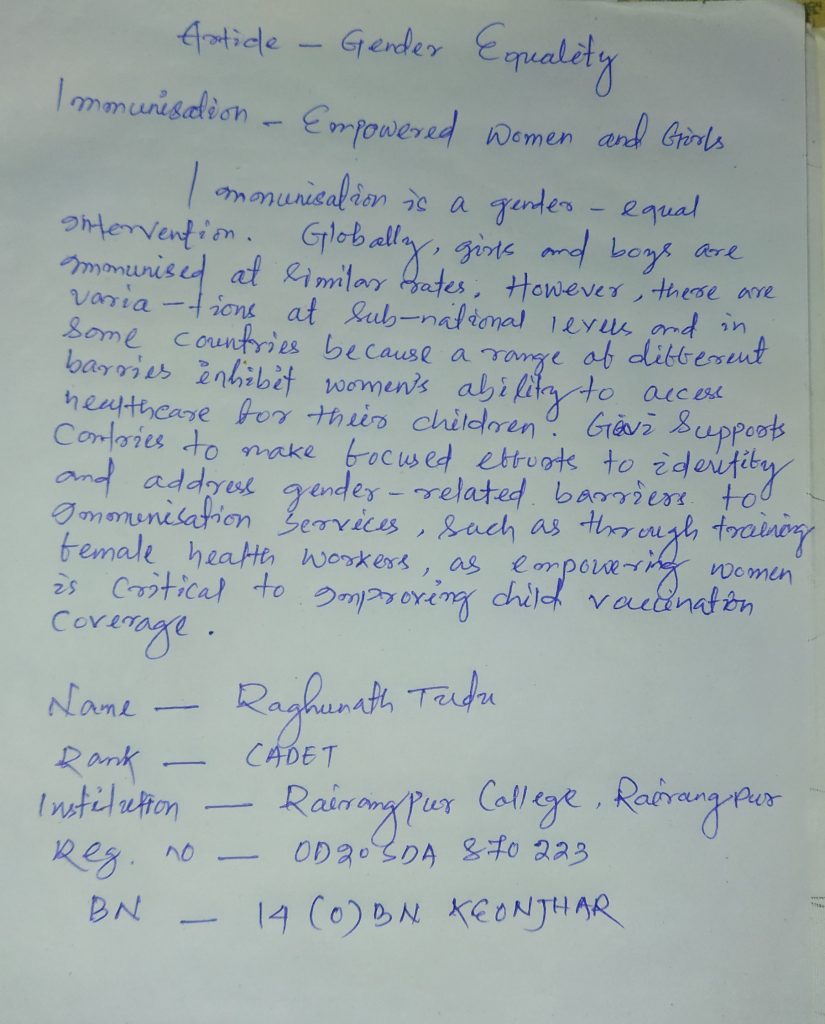 Article – Gender Equality
Immunisation – Empowered Women and Girls
Immunisation is a gender – equal
intervention. Globally, girls and boys are
immunised at similar rates. However, there are
varia – tions at Sub-national levels and in
Some Countries because a range of different
barries inhibit women's ability to access
healthcare for their children. Gavi Supports
Contries to make focused efforts to identify
and address gender – related barriers to
Immunisation Services, Such as through training
female health workers, as empowering women
is Critical to improving child vaccination
Coverage.
Name — Raghunath Tudu
Rank — CADET
Institution — Rairangpur College, Rairangpur
Reg. no — OD20SDA 870 223
BN — 14 (O) BN KEONJHAR